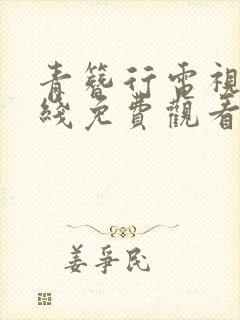 青簪行電視
綫免費觀看
姜爭民